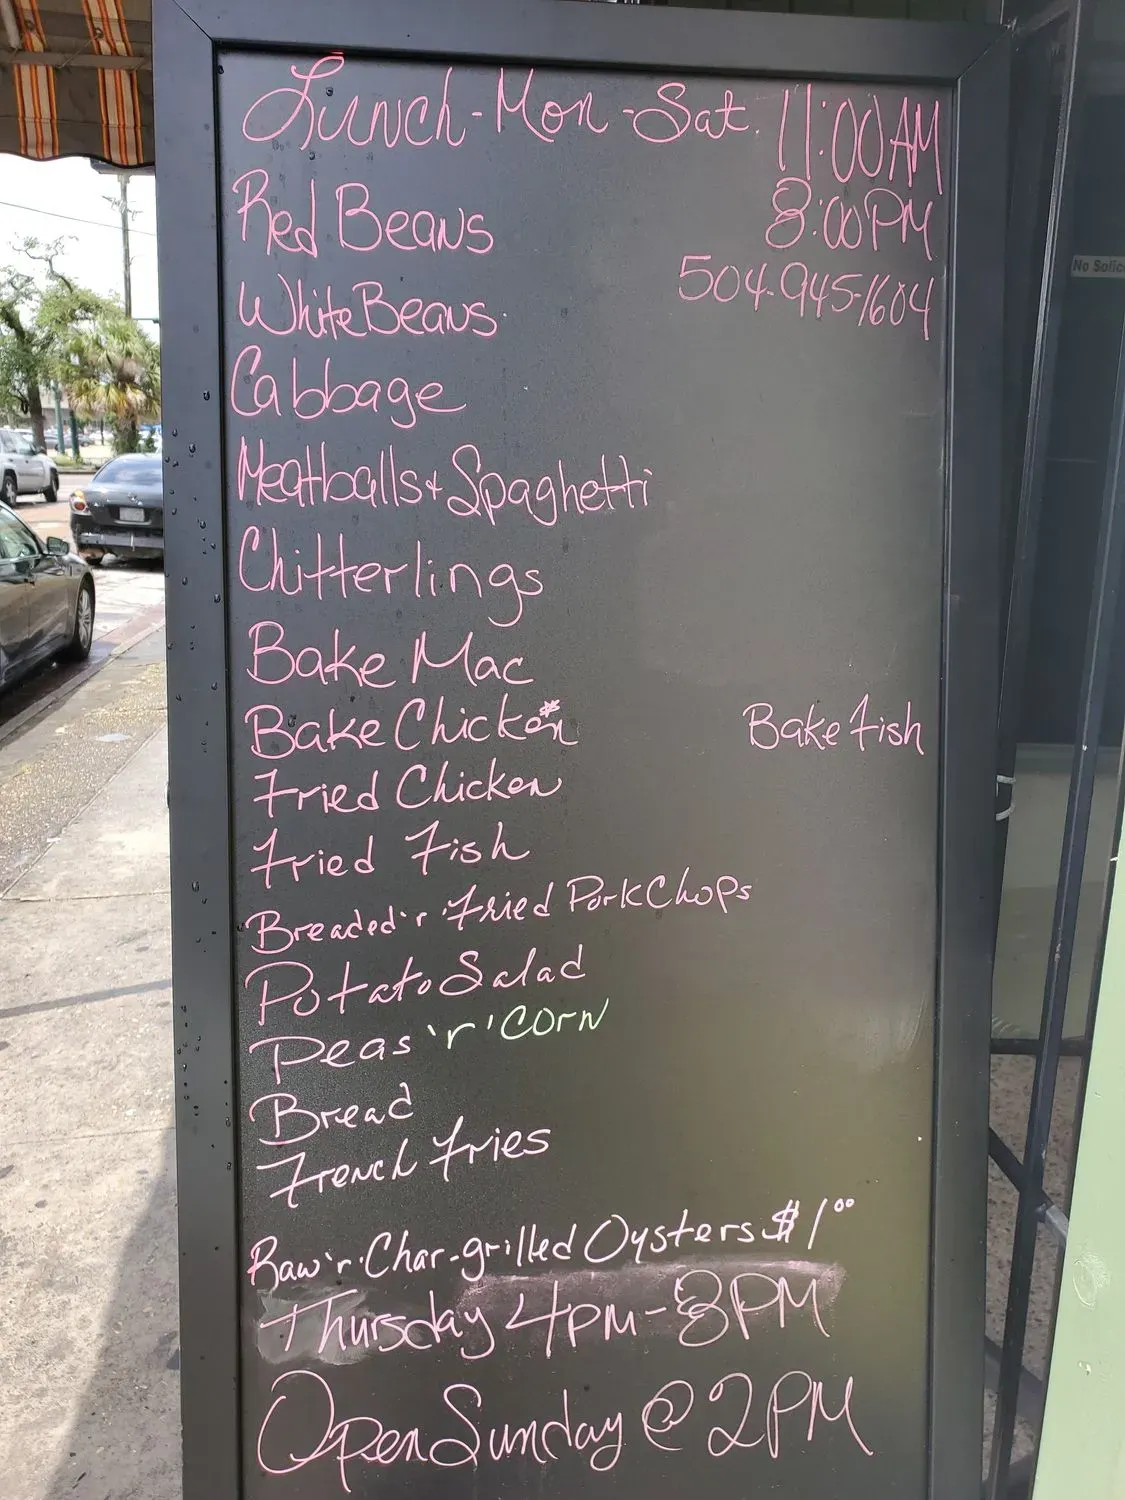 Lunch-Mon-Sat. 11:00AM
8:00PM
Red Beans
504-945-1604
White Beans
Cabbage
Meatballs + Spaghetti
Chitterlings
Bake Mac
Bake Chicken Bake Fish
Fried Chicken
Fried Fish
Breaded 'r' Fried Pork Chops
Potato Salad
Peas 'r' Corn
Bread
French Fries
Raw 'r' Char-grilled Oysters $1⁰⁰
Thursday 4PM-8PM
Open Sunday @ 2PM